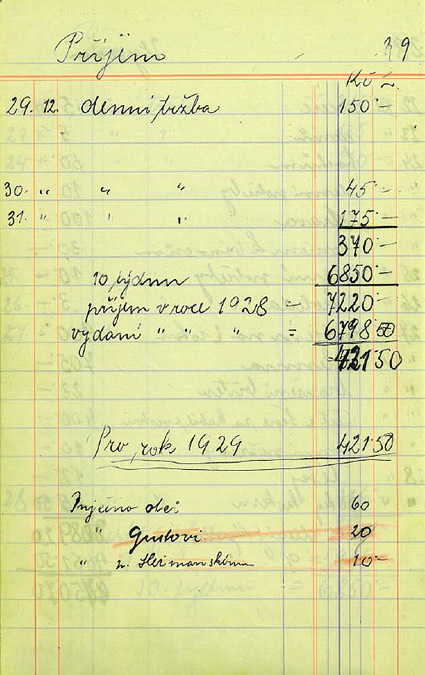 Příjem 39
Kč
29. 12. denní tržba 150·–
30. " " " 45·–
31. " " " 175·–
370·–
10 týdnů 6850·–
příjem v roce 1928 = 7220·–
vydání " " " = 6798 50
421 50
Pro rok 1929 421·50
Půjčeno obci 60
" Gustovi 20
" p. Heřmanskému 10·–